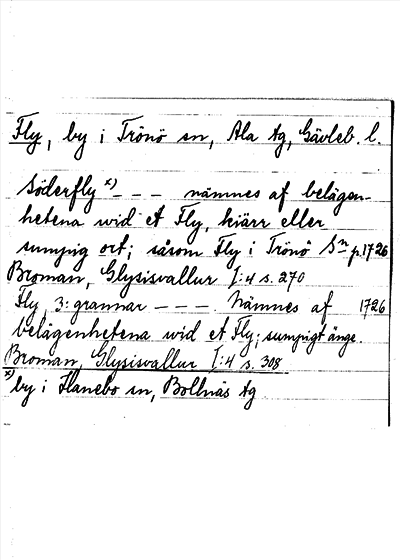 Fly, by i Trönö sn, Ala tg, Gävleb. l.
Söderfly x) - - - nämnes af belägen-
hetena wid et Fly, kiärr eller
sumpig ort; såsom Fly i Trönö Sn p. 1726
Broman, Glysisvallur I:4 s. 270
Fly 3: grannar - - - . Nämnes af 1726
belägenhetena wid et Fly; sumpigt änge.
Broman, Glysisvallur I:4 s. 308
x) by i Hanebo sn, Bollnäs tg